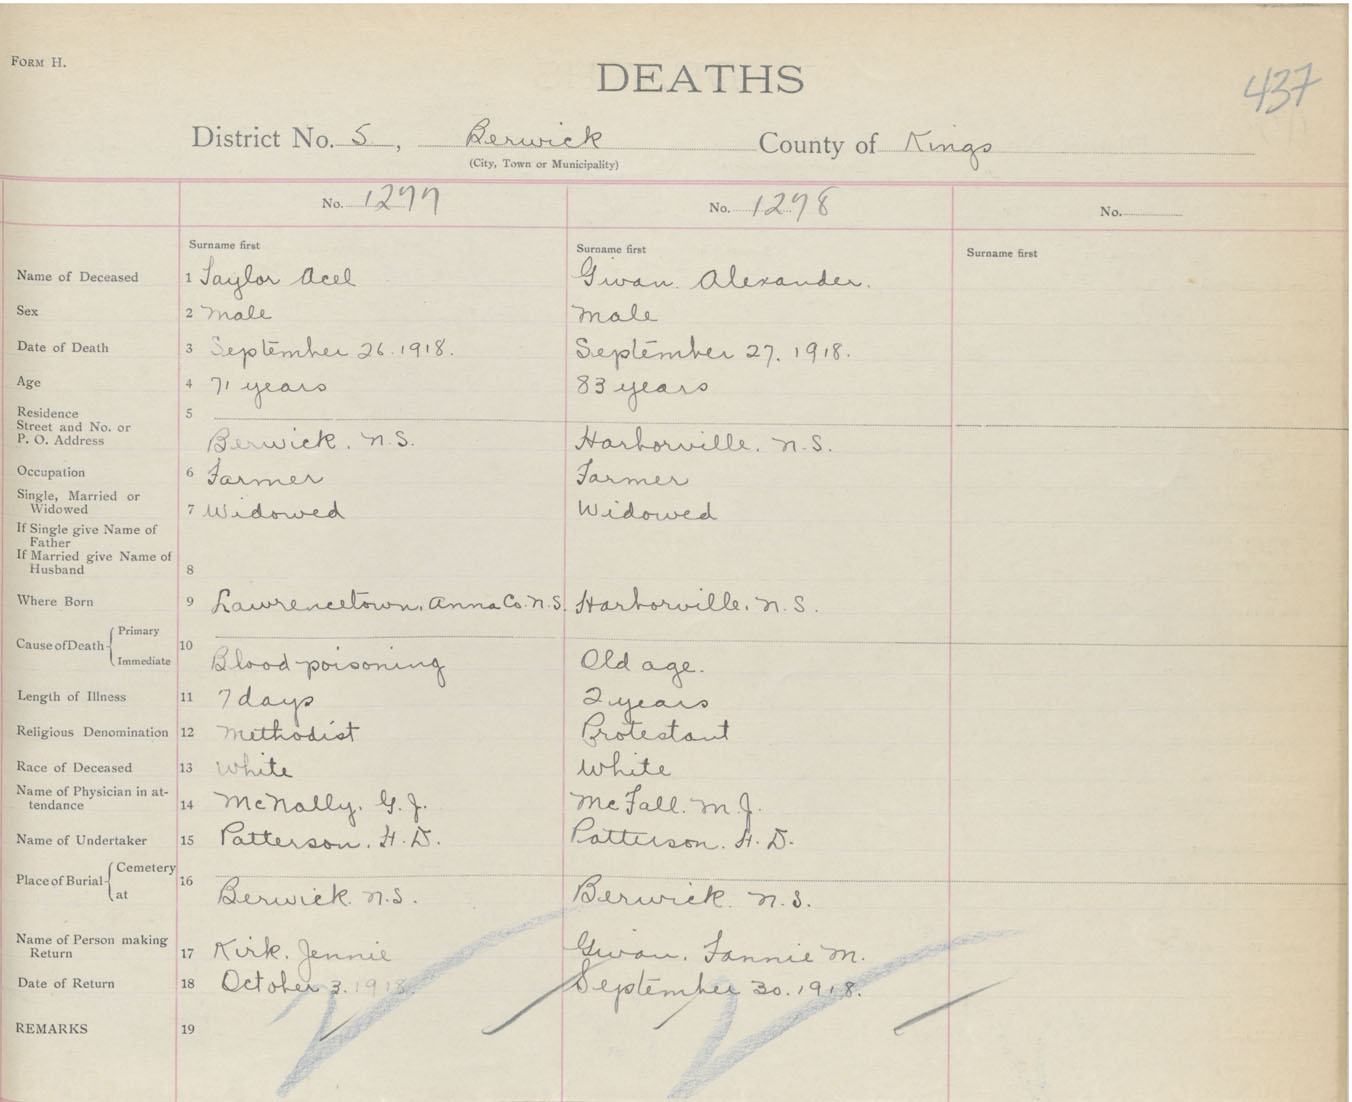 FORM H.
DEATHS
437
District No. 5, Berwick County of Kings
(City, Town or Municipality)
No. 1277 No. 1278 No.
Surname first Surname first Surname first
Name of Deceased 1 Taylor Acel Givan. Alexander.
Sex 2 male male
Date of Death 3 September 26. 1918. September 27. 1918.
Age 4 71 years 83 years
Residence 5
Street and No. or
P. O. Address Berwick. N.S. Harborville. N.S.
Occupation 6 Farmer Farmer
Single, Married or
Widowed 7 Widowed Widowed
If Single give Name of
Father
If Married give Name of
Husband 8
Where Born 9 Lawrencetown. Anna Co. N.S. Harborville. N.S.
Primary
Cause of Death 10
Immediate Blood poisoning Old age.
Length of Illness 11 7 days 2 years
Religious Denomination 12 Methodist Protestant
Race of Deceased 13 White White
Name of Physician in at-
tendance 14 McNally. G. J. McFall. M. J.
Name of Undertaker 15 Patterson. H. D. Patterson. H. D.
Cemetery
Place of Burial 16
at Berwick. N.S. Berwick. N.S.
Name of Person making
Return 17 Kirk. Jennie Givan. Fannie M.
Date of Return 18 October 3. 1918. September 30. 1918.
REMARKS 19